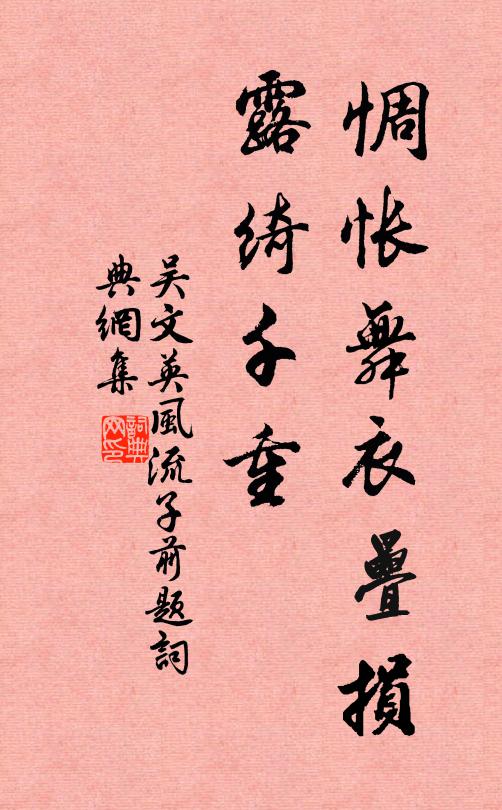 惆怅舞衣疊損
露绮千重
吴文英風流子前題詞
典網集
詞典网印